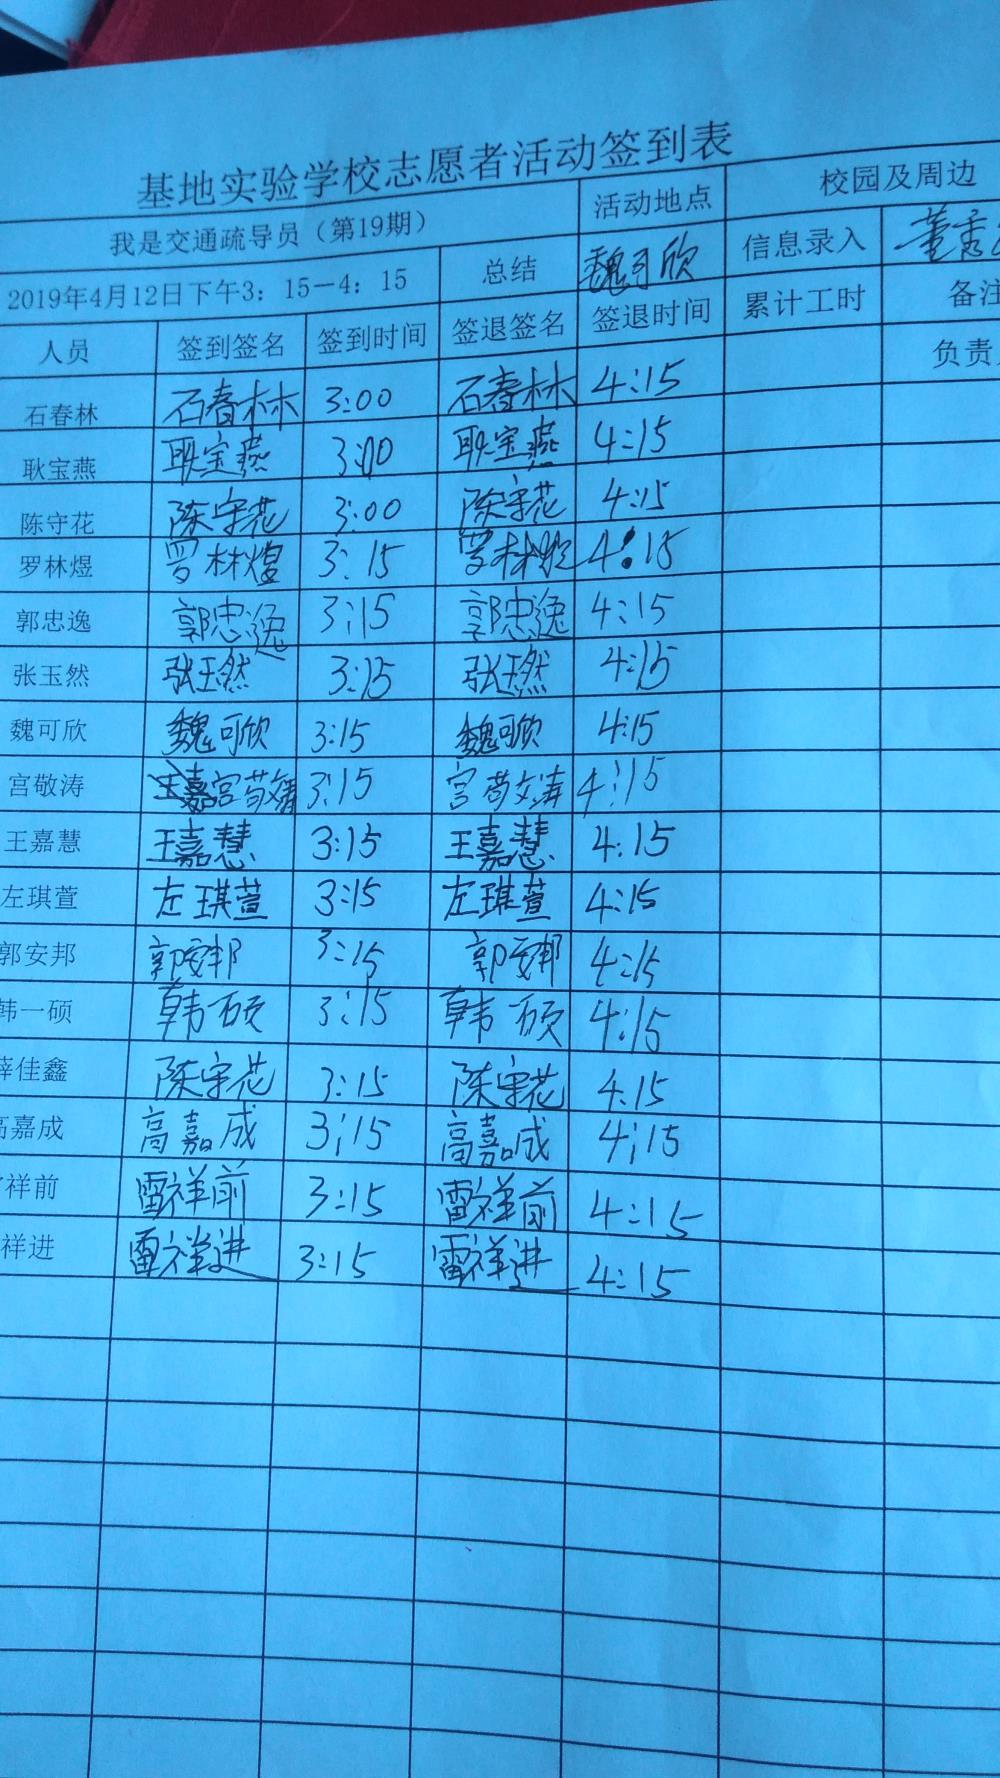 基地实验学校志愿者活动签到表
我是交通疏导员（第19期） 活动地点 校园及周边
2019年4月12日下午3：15－4：15 总结 魏可欣 信息录入 董秀
人员 签到签名 签到时间 签退签名 签退时间 累计工时 备注
负责
石春林 石春林 3:00 石春林 4:15
耿宝燕 耿宝燕 3:00 耿宝燕 4:15
陈守花 陈守花 3:00 陈守花 4:15
罗林煜 罗林煜 3:15 罗林煜 4:15
郭忠逸 郭忠逸 3:15 郭忠逸 4:15
张玉然 张玉然 3:15 张玉然 4:15
魏可欣 魏可欣 3:15 魏可欣 4:15
宫敬涛 宫敬涛 3:15 宫敬涛 4:15
王嘉慧 王嘉慧 3:15 王嘉慧 4:15
左琪萱 左琪萱 3:15 左琪萱 4:15
郭安邦 郭安邦 3:15 郭安邦 4:15
韩一硕 韩硕 3:15 韩硕 4:15
薛佳鑫 陈守花 3:15 陈守花 4:15
高嘉成 高嘉成 3:15 高嘉成 4:15
祥前 雷祥前 3:15 雷祥前 4:15
祥进 雷祥进 3:15 雷祥进 4:15